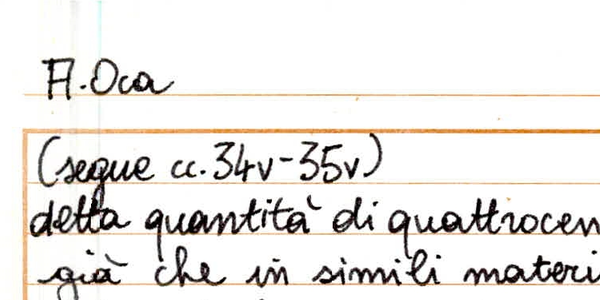 A. Oca
(segue cc. 34v-35v)
detta quantità di quattrocen
già che in simili materi